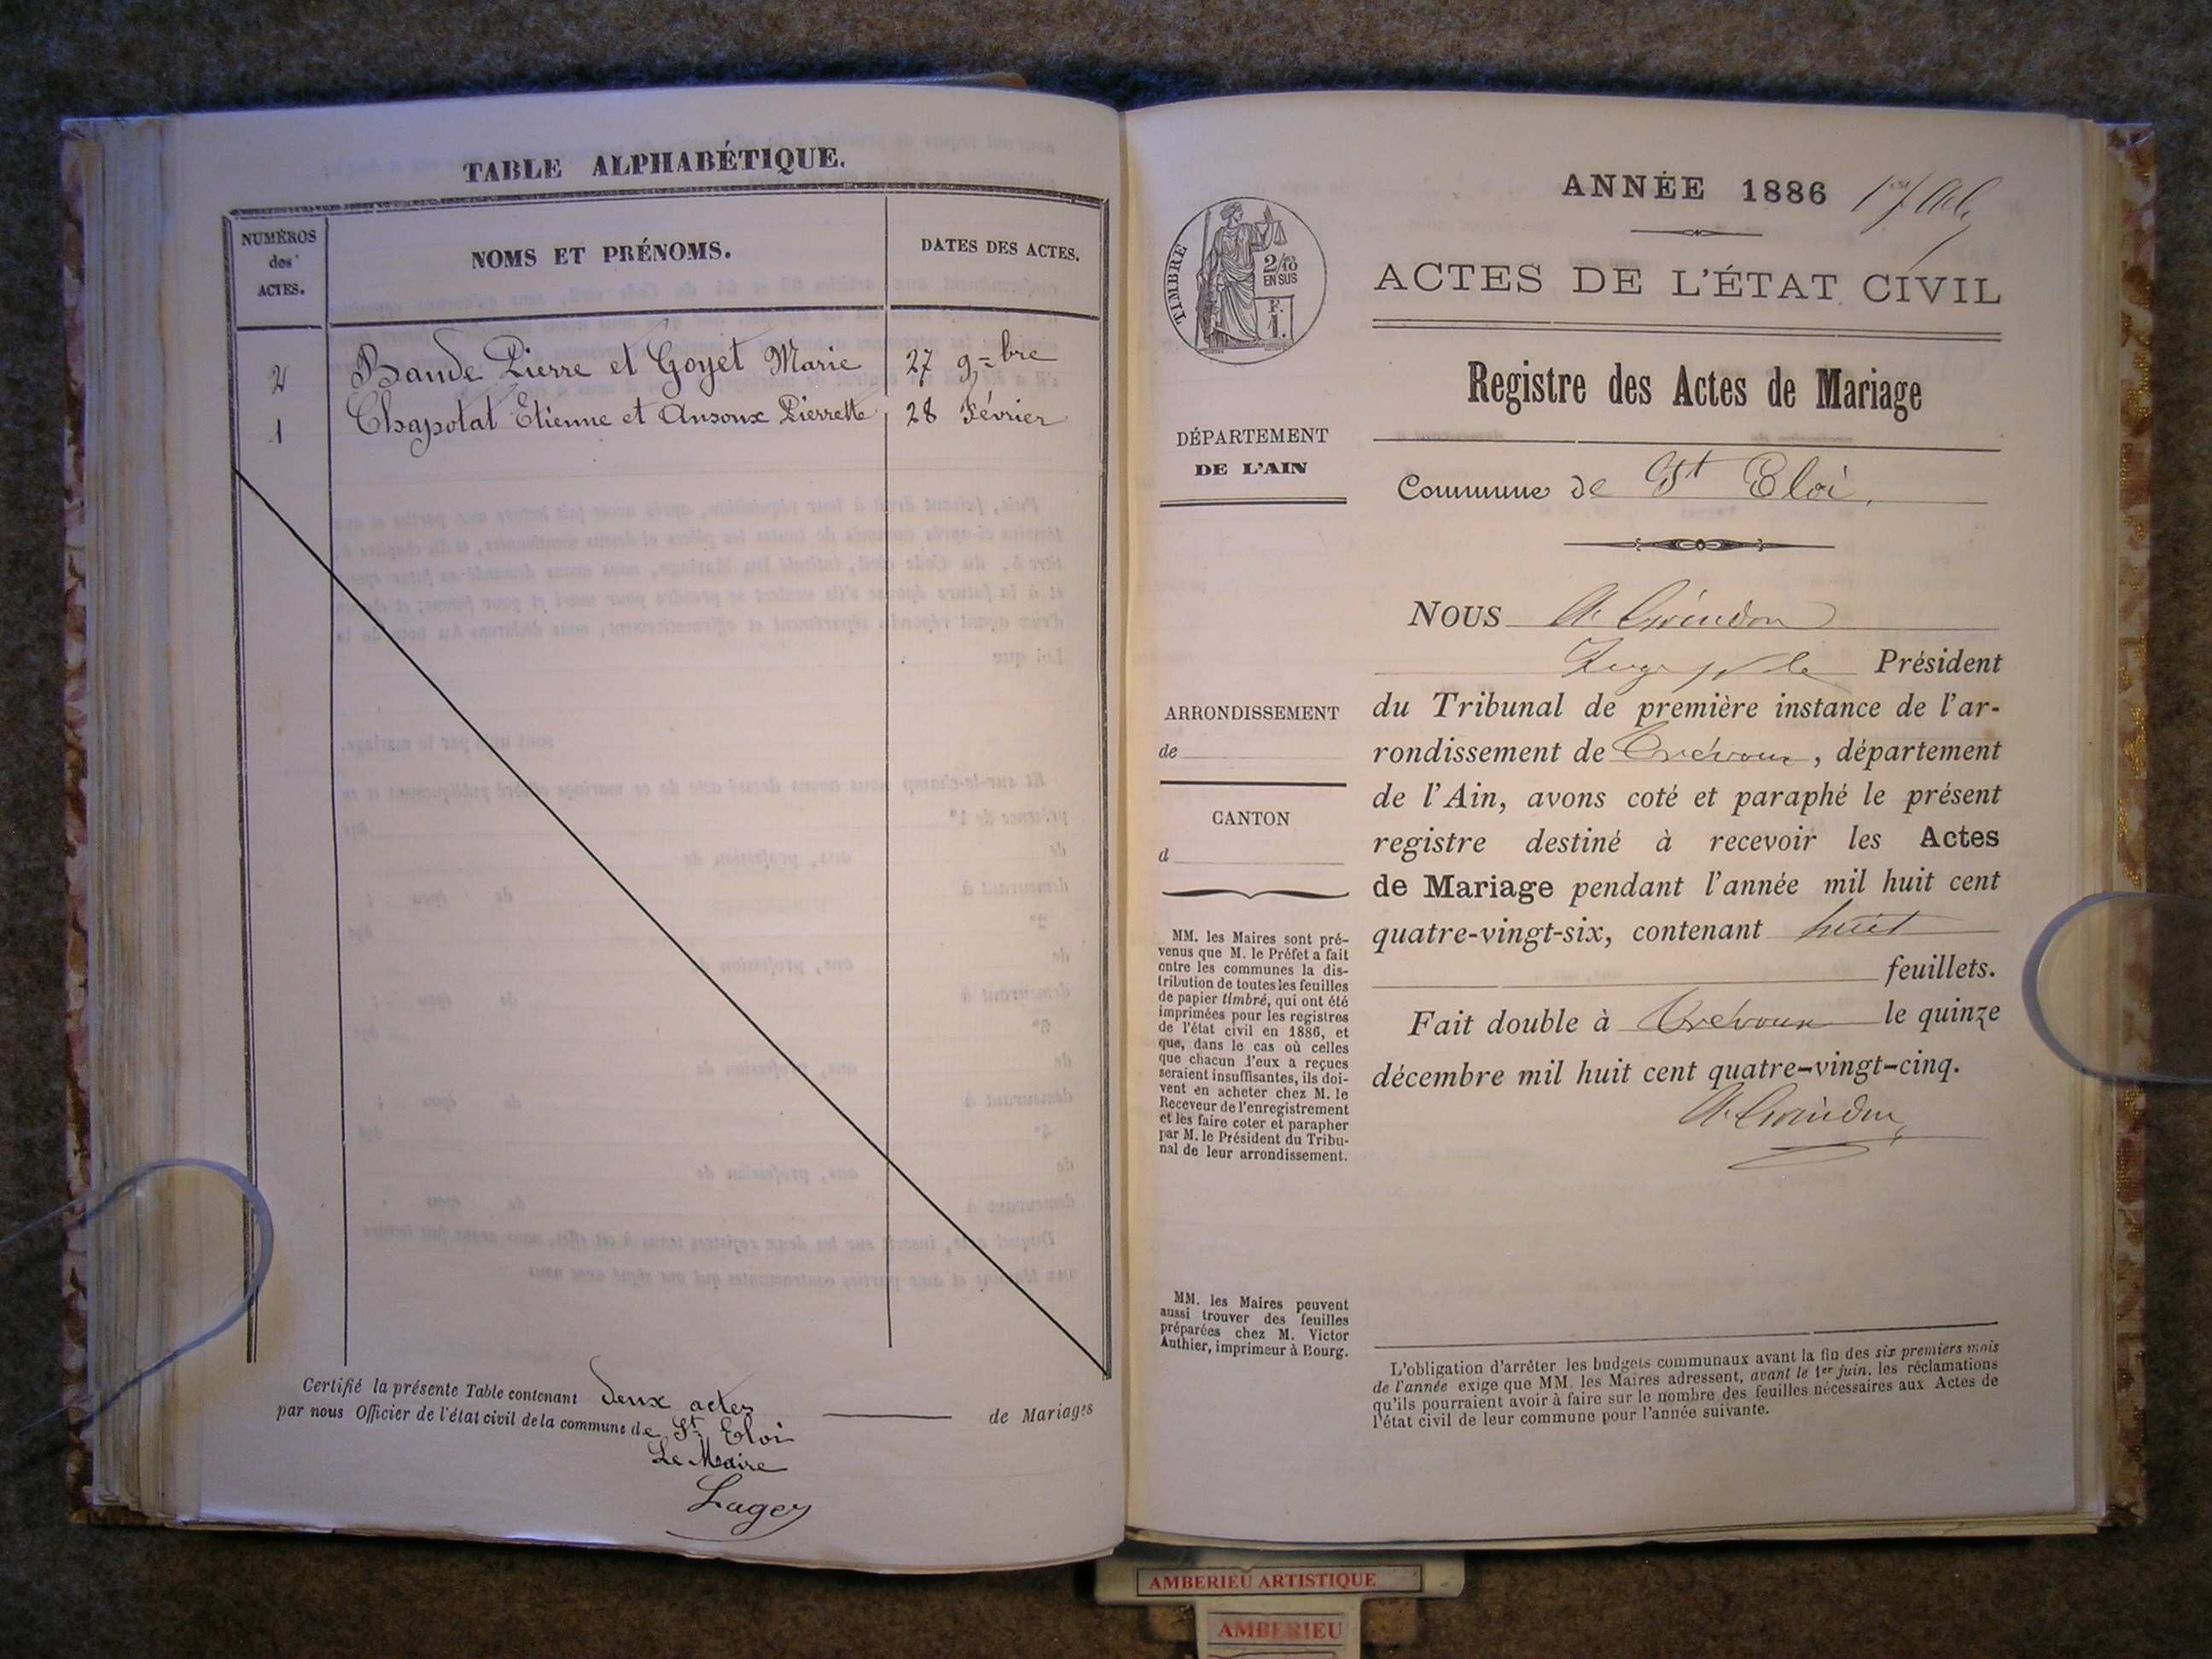 TABLE ALPHABÉTIQUE.
NUMÉROS
des
ACTES.
NOMS ET PRÉNOMS.
DATES DES ACTES.
2 Bande Pierre et Goyet Marie 27 9=bre
1 Chapolat Etienne et Ansoux Pierrette 28 Février
Certifié la présente Table contenant deux actes de Mariages
par nous Officier de l'état civil de la commune de St Eloi
Le Maire
Lager
ANNÉE 1886
TIMBRE
2/10
EN SUS
F.
1.
ACTES DE L'ÉTAT CIVIL
Registre des Actes de Mariage
DÉPARTEMENT
DE L'AIN
Commune de St Eloi.
NOUS
Président
du Tribunal de première instance de l'ar-
rondissement de Trévoux, département
de l'Ain, avons coté et paraphé le présent
registre destiné à recevoir les Actes
de Mariage pendant l'année mil huit cent
quatre-vingt-six, contenant huit
feuillets.
Fait double à Trévoux le quinze
décembre mil huit cent quatre-vingt-cinq.
ARRONDISSEMENT
de
CANTON
d
MM. les Maires sont pré-
venus que M. le Préfet a fait
entre les communes la dis-
tribution de toutes les feuilles
de papier timbré, qui ont été
imprimées pour les registres
de l'état civil en 1886, et
que, dans le cas où celles
que chacun d'eux a reçues
seraient insuffisantes, ils doi-
vent en acheter chez M. le
Receveur de l'enregistrement
et les faire coter et parapher
par M. le Président du Tribu-
nal de leur arrondissement.
MM. les Maires peuvent
aussi trouver des feuilles
préparées chez M. Victor
Authier, imprimeur à Bourg.
L'obligation d'arrêter les budgets communaux avant la fin des six premiers mois
de l'année exige que MM. les Maires adressent, avant le 1er juin, les réclamations
qu'ils pourraient avoir à faire sur le nombre des feuilles nécessaires aux Actes de
l'état civil de leur commune pour l'année suivante.
AMBERIEU ARTISTIQUE
AMBERIEU